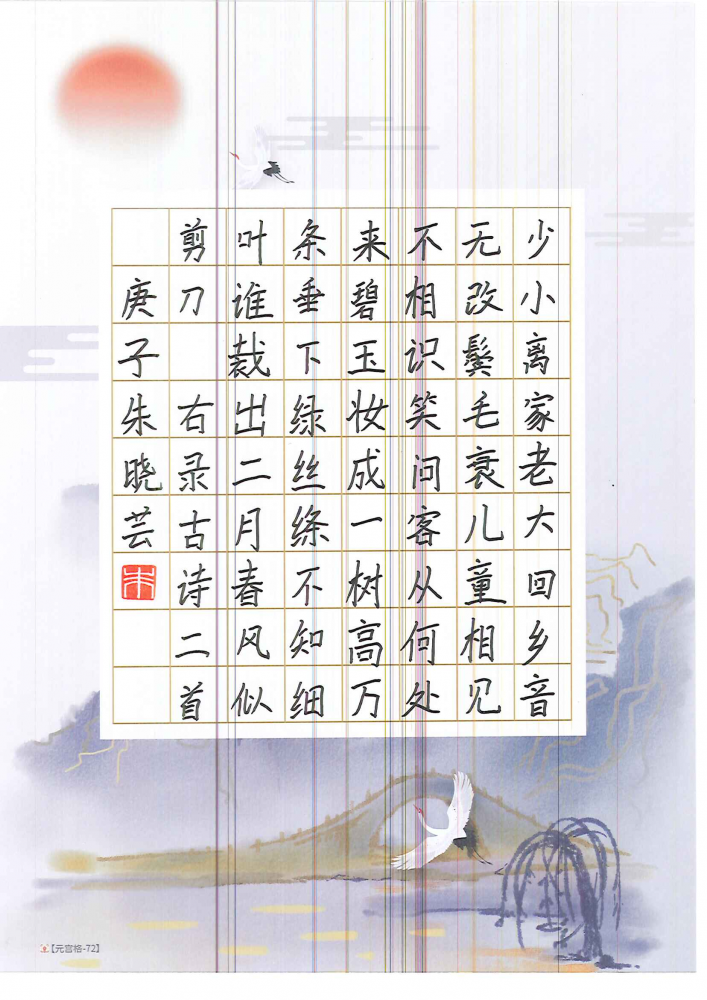 少小离家老大回乡音
无改鬓毛衰儿童相见
不相识笑问客从何处
来碧玉妆成一树高万
条垂下绿丝绦不知细
叶谁裁出二月春风似
剪刀 右录古诗二首
庚子朱晓芸
朱
【元宫格-72】